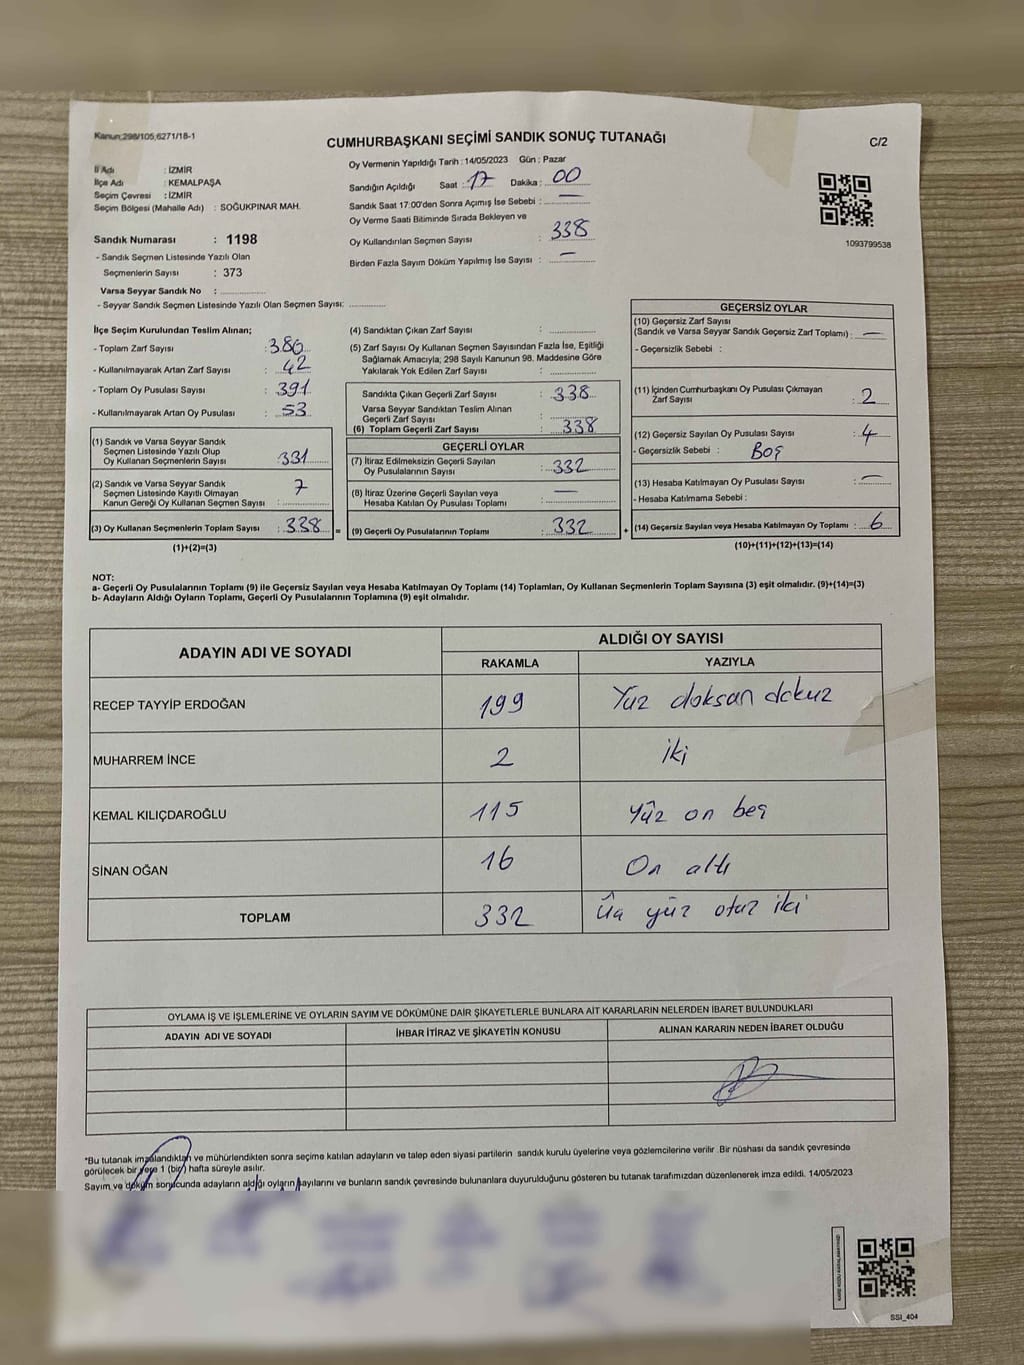 Kanun:298/105;6271/18-1
CUMHURBAŞKANI SEÇİMİ SANDIK SONUÇ TUTANAĞI
C/2
İl Adı : İZMİR
İlçe Adı : KEMALPAŞA
Seçim Çevresi : İZMİR
Seçim Bölgesi (Mahalle Adı) : SOĞUKPINAR MAH.
Sandık Numarası : 1198
- Sandık Seçmen Listesinde Yazılı Olan
Seçmenlerin Sayısı : 373
Varsa Seyyar Sandık No :
- Seyyar Sandık Seçmen Listesinde Yazılı Olan Seçmen Sayısı:
Oy Vermenin Yapıldığı Tarih : 14/05/2023 Gün : Pazar
Sandığın Açıldığı Saat : 17 Dakika : 00
Sandık Saat 17:00'den Sonra Açımış İse Sebebi : —
Oy Verme Saati Bitiminde Sırada Bekleyen ve
Oy Kullandırılan Seçmen Sayısı : 338
Birden Fazla Sayım Döküm Yapılmış İse Sayısı : —
1093799538
İlçe Seçim Kurulundan Teslim Alınan;
- Toplam Zarf Sayısı : 380
- Kullanılmayarak Artan Zarf Sayısı : 42
- Toplam Oy Pusulası Sayısı : 391
- Kullanılmayarak Artan Oy Pusulası : 53
(1) Sandık ve Varsa Seyyar Sandık
Seçmen Listesinde Yazılı Olup
Oy Kullanan Seçmenlerin Sayısı : 331
(2) Sandık ve Varsa Seyyar Sandık
Seçmen Listesinde Kayıtlı Olmayan
Kanun Gereği Oy Kullanan Seçmen Sayısı : 7
(3) Oy Kullanan Seçmenlerin Toplam Sayısı : 338 =
(1)+(2)=(3)
(4) Sandıktan Çıkan Zarf Sayısı :
(5) Zarf Sayısı Oy Kullanan Seçmen Sayısından Fazla İse, Eşitliği
Sağlamak Amacıyla; 298 Sayılı Kanunun 98. Maddesine Göre
Yakılarak Yok Edilen Zarf Sayısı :
Sandıkta Çıkan Geçerli Zarf Sayısı : 338
Varsa Seyyar Sandıktan Teslim Alınan
Geçerli Zarf Sayısı :
(6) Toplam Geçerli Zarf Sayısı : 338
GEÇERLİ OYLAR
(7) İtiraz Edilmeksizin Geçerli Sayılan
Oy Pusulalarının Sayısı : 332
(8) İtiraz Üzerine Geçerli Sayılan veya
Hesaba Katılan Oy Pusulaları Toplamı : —
(9) Geçerli Oy Pusulalarının Toplamı : 332 +
GEÇERSİZ OYLAR
(10) Geçersiz Zarf Sayısı
(Sandık ve Varsa Seyyar Sandık Geçersiz Zarf Toplamı) : —
- Geçersizlik Sebebi :
(11) İçinden Cumhurbaşkanı Oy Pusulası Çıkmayan
Zarf Sayısı : 2
(12) Geçersiz Sayılan Oy Pusulası Sayısı : 4
- Geçersizlik Sebebi : Boş
(13) Hesaba Katılmayan Oy Pusulası Sayısı : —
- Hesaba Katılmama Sebebi :
(14) Geçersiz Sayılan veya Hesaba Katılmayan Oy Toplamı : 6
(10)+(11)+(12)+(13)=(14)
NOT:
a- Geçerli Oy Pusulalarının Toplamı (9) ile Geçersiz Sayılan veya Hesaba Katılmayan Oy Toplamı (14) Toplamları, Oy Kullanan Seçmenlerin Toplam Sayısına (3) eşit olmalıdır. (9)+(14)=(3)
b- Adayların Aldığı Oyların Toplamı, Geçerli Oy Pusulalarının Toplamına (9) eşit olmalıdır.
ADAYIN ADI VE SOYADI
ALDIĞI OY SAYISI
RAKAMLA YAZIYLA
RECEP TAYYİP ERDOĞAN 199 Yüz doksan dokuz
MUHARREM İNCE 2 iki
KEMAL KILIÇDAROĞLU 115 Yüz on beş
SİNAN OĞAN 16 On altı
TOPLAM 332 Üç yüz otuz iki
OYLAMA İŞ VE İŞLEMLERİNE VE OYLARIN SAYIM VE DÖKÜMÜNE DAİR ŞİKAYETLERLE BUNLARA AİT KARARLARIN NELERDEN İBARET BULUNDUKLARI
ADAYIN ADI VE SOYADI İHBAR İTİRAZ VE ŞİKAYETİN KONUSU ALINAN KARARIN NEDEN İBARET OLDUĞU
*Bu tutanak imzalandıktan ve mühürlendikten sonra seçime katılan adayların ve talep eden siyasi partilerin sandık kurulu üyelerine veya gözlemcilerine verilir .Bir nüshası da sandık çevresinde
görülecek bir yere 1 (bir) hafta süreyle asılır.
Sayım ve döküm sonucunda adayların aldığı oyların sayılarını ve bunların sandık çevresinde bulunanlara duyurulduğunu gösteren bu tutanak tarafımızdan düzenlenerek imza edildi. 14/05/2023
SSİ_404